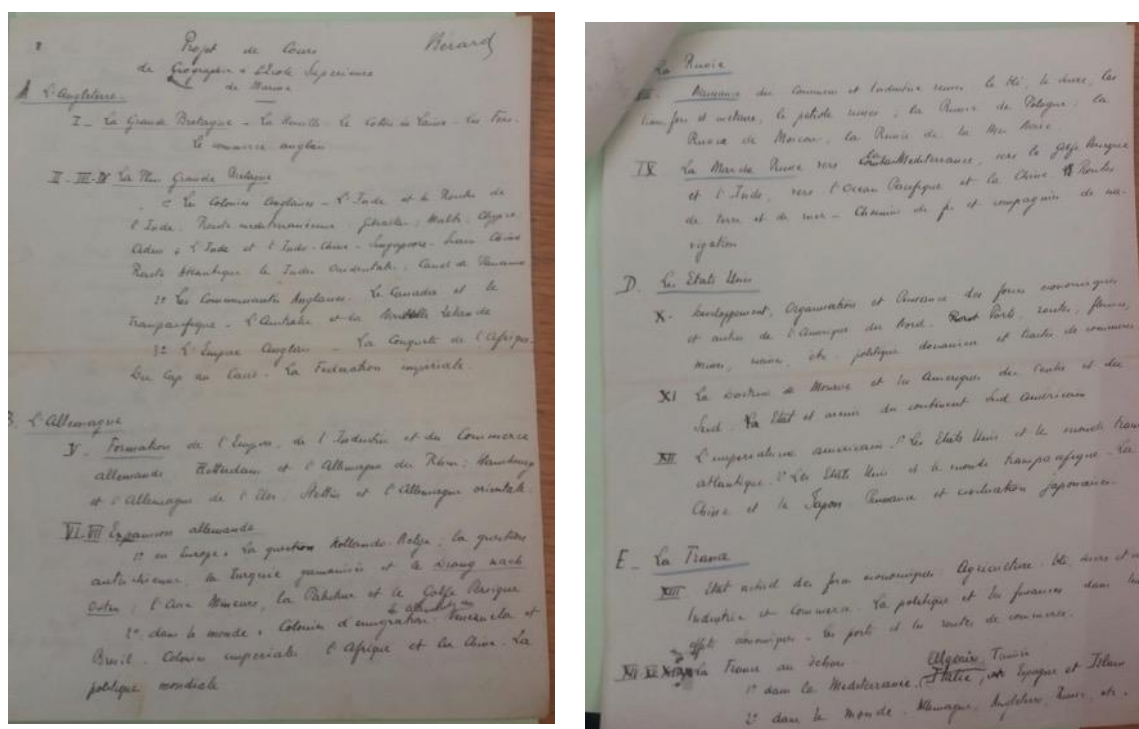 Projet de Cours
Bérard
de Géographie à l'Ecole Supérieure
de Marine
A L'Angleterre
I _ La Grande Bretagne _ La Houille. Le Coton la Laine. Les Fers.
Le commerce anglais
II - III - IV La Plus Grande Bretagne
Les Colonies Anglaises _ L'Inde et la Route de
l'Inde. Route méditerranéenne. Gibraltar, Malte, Chypre
Aden ; L'Inde et l'Indo-Chine - Singapoore -
Route Atlantique les Indes Occidentales, Canal de Panama
2° Les Communautés Anglaises. Le Canada et le
Transpacifique. L'Australie et la Nouvelle Zélande
3° L'Empire Anglais _ La Conquête de l'Afrique.
Du Cap au Caire. La Fédération impériale.
B. L'Allemagne
V. Formation de l'Empire, de l'Industrie et du Commerce
allemands Rotterdam et l'Allemagne du Rhin ; Hambourg
et l'Allemagne de l'Elbe, Stettin et l'Allemagne orientale.
VI.VII Expansion allemande
1° en Europe. La question Hollando-Belge ; la question
autrichienne, la Turquie germanisée et le Drang nach
Osten ; l'Asie Mineure, la Palestine et le Golfe Persique
2° dans le monde. Colonies d'émigration. Venezuela et
Brésil. Colonies impériales l'Afrique et la Chine. La
politique mondiale
La Russie
Naissance du Commerce et Industrie russes. le blé, le sucre, les
le pétrole russes ; la Russie de Pologne ; la
Russie de Moscou, la Russie de la Mer Noire
IX La Marche Russe vers la Méditerranée, vers le Golfe Persique
et l'Inde, vers l'Océan Pacifique et la Chine. Routes
de terre et de mer _ Chemins de fer et compagnies de na-
vigation
D. Les Etats Unis
X. Développement, Organisation et Puissance des forces économiques
et autres de l'Amérique du Nord. Ports, routes, fleuves,
mines, usines, etc. politique douanière et traités de commerce
XI La Doctrine de Monroe et les Amériques du Centre et du
Sud. Etat et avenir du continent Sud Américain
XII L'impérialisme américain. 1° Les Etats Unis et le monde trans
atlantique. 2° Les Etats Unis et le monde transpacifique. La
Chine et le Japon Puissance et civilisation japonaises.
E _ La France
XIII Etat actuel des forces économiques. Agriculture. blé, sucre et
Industrie et Commerce. La politique et les finances dans leurs
effets économiques. Les ports et les routes de commerce.
La France au dehors
1° dans la Méditerranée. Algérie, Tunisie Italie, Espagne et Islam
2° dans le monde. Allemagne, Angleterre, Russie, etc.